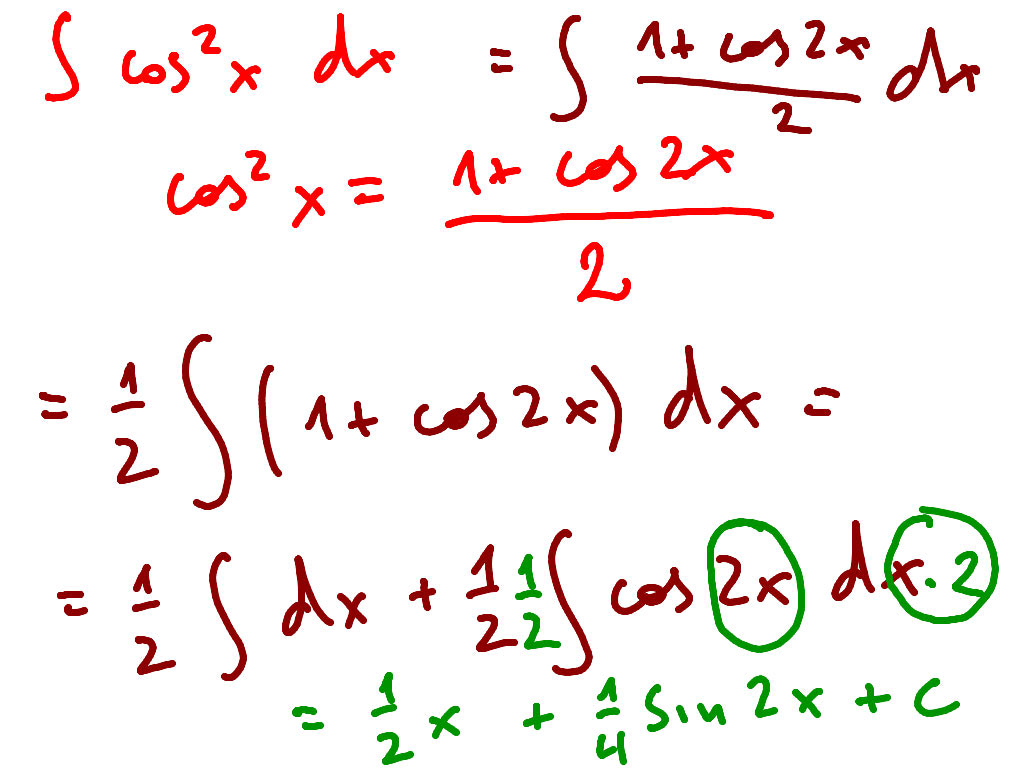 ∫ cos² x dx = ∫ (1 + cos 2x)/2 dx
cos² x = (1 + cos 2x)/2
= 1/2 ∫ (1 + cos 2x) dx =
= 1/2 ∫ dx + 1/2 1/2 ∫ cos 2x dx · 2
= 1/2 x + 1/4 sin 2x + C